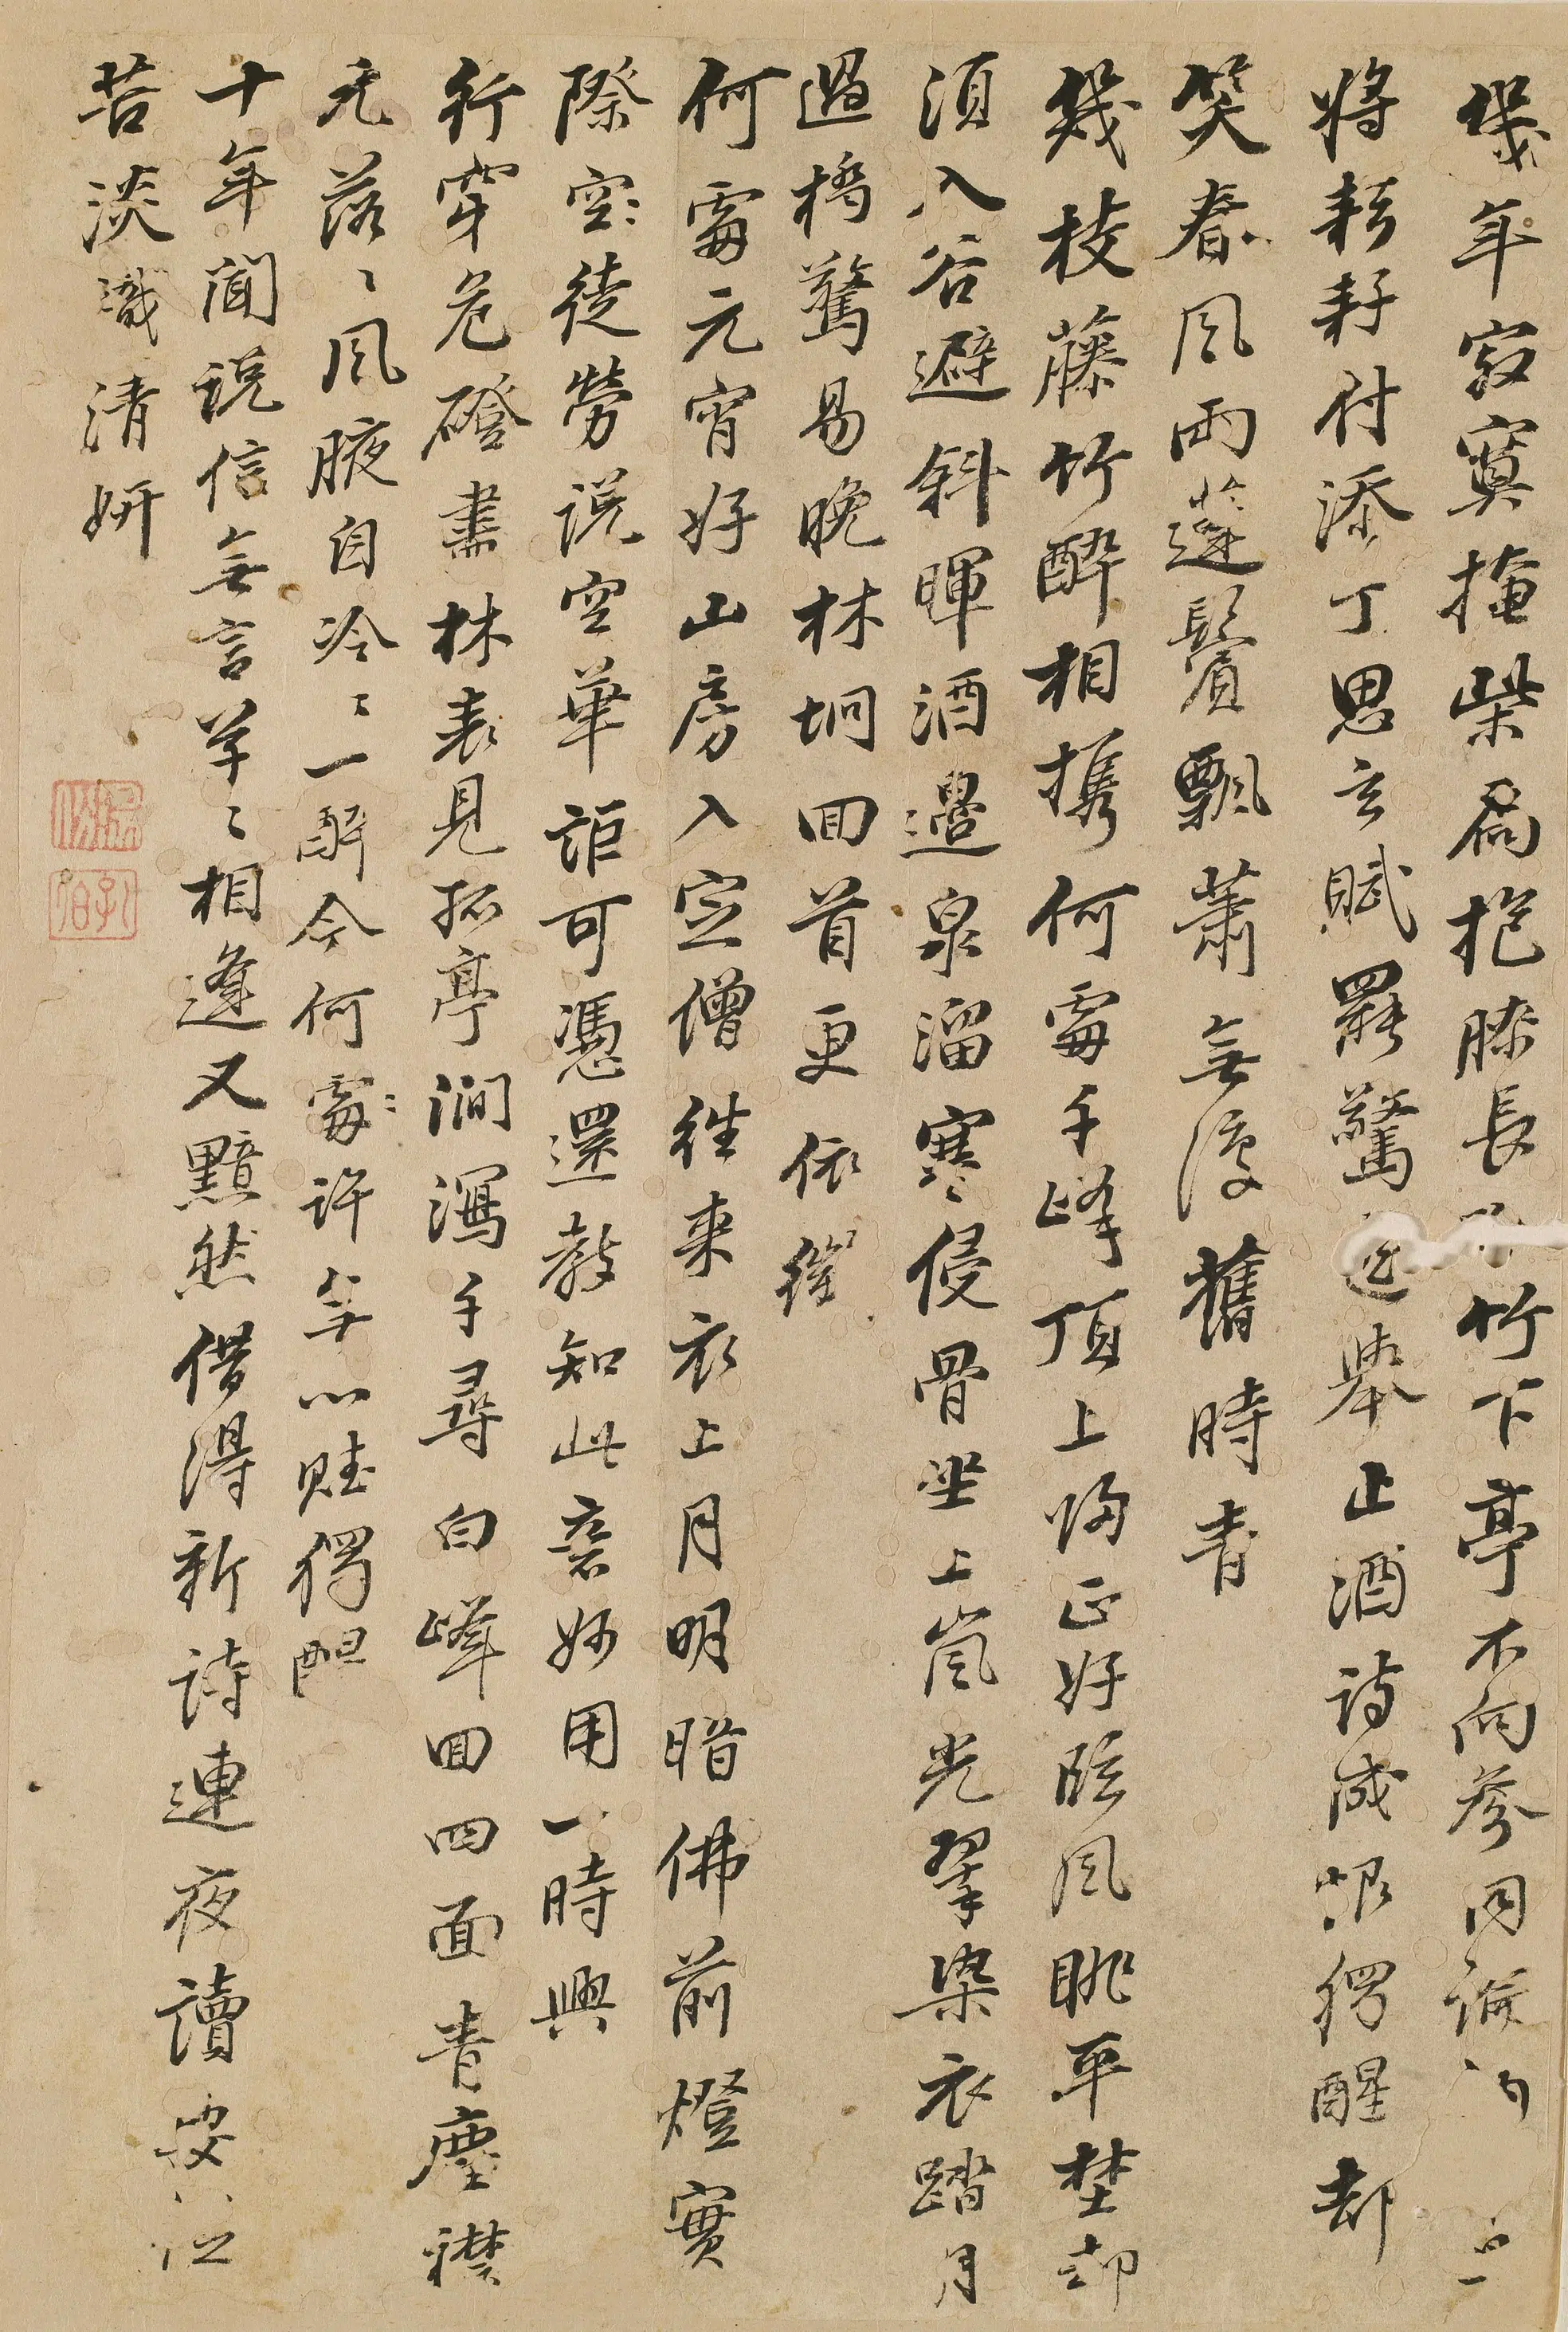 幾年寂寞掩柴扃抱膝長竹下亭不向參同論
將耘耔付添丁思玄賦罷驚舉止酒詩成恨獨醒却
笑春風雨蓬鬢飄蕭無復舊時青
幾枝藤竹醉相攜何處千峰頂上歸正好臨風眺平埜却
須入谷避斜暉酒邊泉溜寒侵骨坐上嵐光翠染衣踏月
過橋驚易晚林坰回首更依依
何處元宵好山房入定僧往來衣上月明暗佛前燈實
際空空徒勞說空華詎可憑還教知此意妙用一時興
行穿危磴盡林表見孤亭澗瀉千尋白峰回四面青塵襟
元落落風腋自冷冷一醉今何處處許年心賦獨
十年聞說信無言草草相逢又黯然借得新詩連夜讀
苦淡識清妍